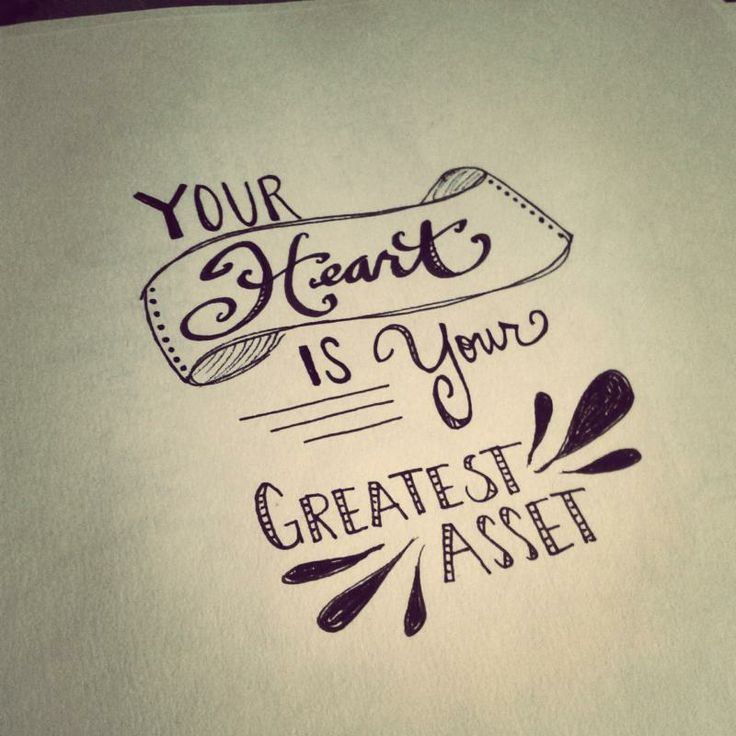 YOUR
Heart
IS Your
GREATEST
ASSET